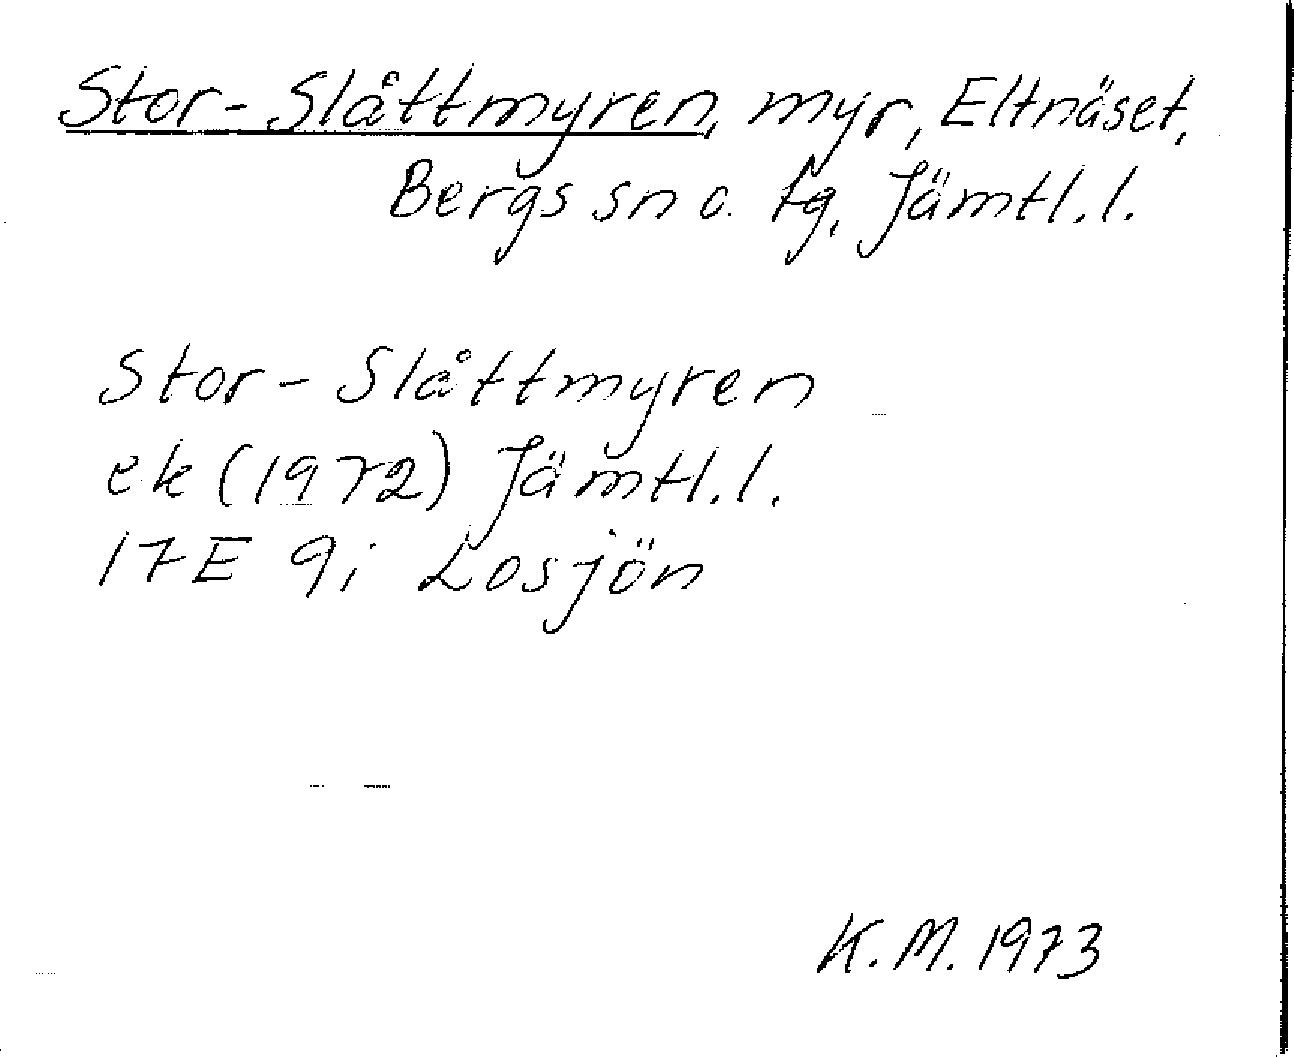 Stor-Slåttmyren, myr, Eltnäset,
Bergs sn o. tg, Jämtl. l.
Stor-Slåttmyren
ek (1972) Jämtl. l.
17E 9i Losjön
K. M. 1973